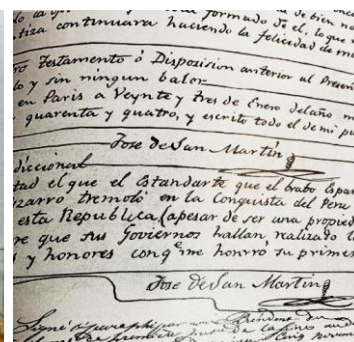 la formado de el, lo que
tiza continuara haciendo la felicidad de m
ro Testamento ó Disposicion anterior al Presen
lo y sin ningun balor
en Paris a Veynte y tres de Enero del año m
quarenta y quatro, y escrito todo el de mi pu
Jose de San Martin
diccional
tad el que el Estandarte que el brabo Españ
zarro tremoló en la Conquista del Peru
esta Republica (apesar de ser una propied
re que sus Goviernos hallan realizado l
s y honores con q.e me honrró su primer
Jose de San Martin